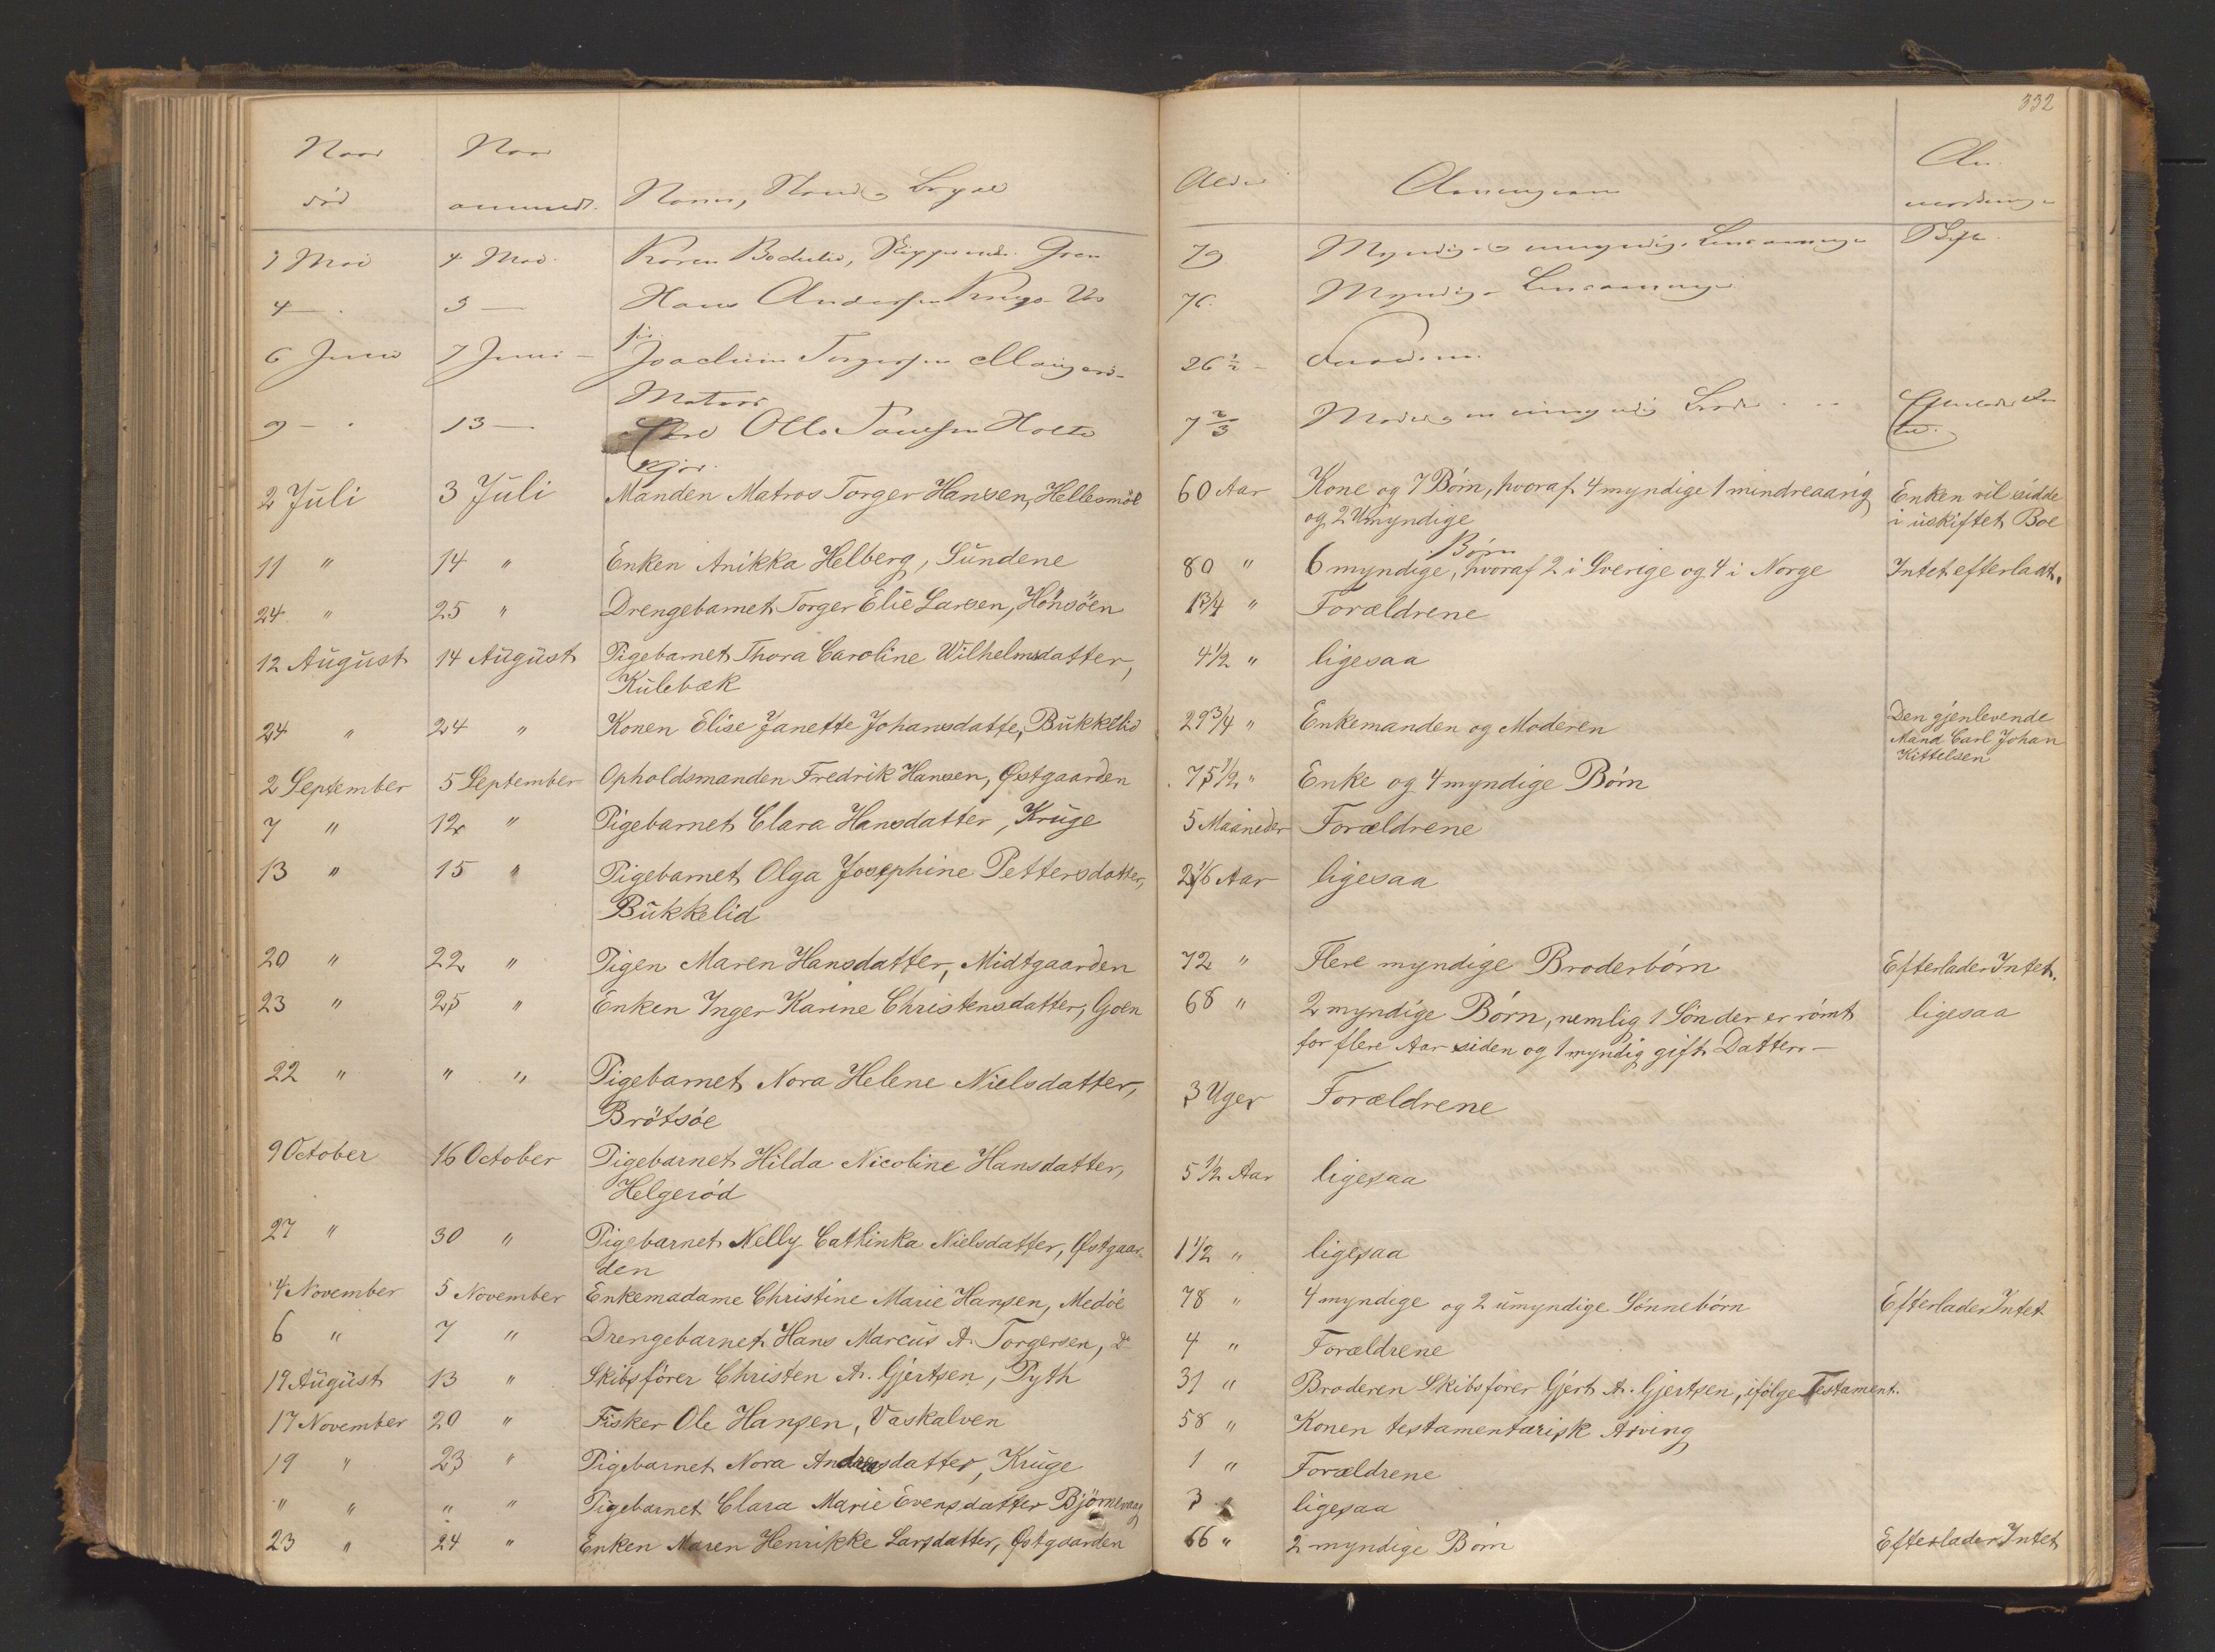 332
Naar død
Naar anmeldt.
Navn, Stand og Bopæl
Alder
Arvingerne
An-
mærkning
3 Mai 4 Mai Karen Bodvine, Goen 79 Myndige og umyndige Livsarvinger
4 — 5 — Hans Andersen Kruge 76. Myndige Livsarvinger
6 Juni 7 Juni — Joachim Torgersen 26 1/2
Matros
9 — 13 — Otto Holte 7 2/3 Moder og en umyndig Broder
2 Juli 3 Juli Manden Matros Torger Hansen, Hellesmöe 60 Aar Kone og 7 Børn, hvoraf 4 myndige 1 mindreaarig Enken vil sidde
og 2 Umyndige i uskiftet Boe
11 " 14 " Enken Anikka Helberg, Sundene 80 " 6 myndige Børn, hvoraf 2 i Sverige og 4 i Norge Intet efterladt.
24 " 25 " Drengebarnet Torger Elie Larsen, Hönsöen 1 3/4 " Forældrene
12 August 14 August Pigebarnet Thora Caroline Wilhelmsdatter, 4 1/2 " ligesaa
Kulebæk
24 " 24 " Konen Elise Janette Johansdatte, Bukkelid 29 3/4 " Enkemanden og Moderen Den gjenlevende
Mand Carl Johan
Kittelsen
2 September 5 September Opholdsmanden Fredrik Hansen, Østgaarden 75 1/2 " Enke og 4 myndige Börn
7 " 12 " Pigebarnet Clara Hansdatter, Kruge 5 Maaneder Forældrene
13 " 15 " Pigebarnet Olga Josephine Pettersdatter, 2 1/6 Aar ligesaa
Bukkelid
20 " 22 " Pigen Maren Hansdatter, Midtgaarden 72 " Flere myndige Broderbörn Efterlader Intet.
23 " 25 " Enken Inger Karine Christensdatter, Goen 68 " 2 myndige Börn, nemlig 1 Sön der er römt ligesaa
for flere Aar siden og 1 myndig gift Datter. —
22 " " " Pigebarnet Nora Helene Nielsdatter, 3 Uger Forældrene
Brötsöe
9 October 16 October Pigebarnet Hilda Nicoline Hansdatter, 5 1/2 Aar ligesaa
Helgeröd
27 " 30 " Pigebarnet Nelly Cathinka Nielsdatter, Østgaar- 1 1/2 " ligesaa
den
4 November 5 November Enkemadame Christine Marie Hansen, Medöe 78 " 4 myndige og 2 umyndige Sönnebörn Efterlader Intet
6 " 7 " Drengebarnet Hans Marcus A. Torgersen, do 4 " Forældrene
19 August 13 " Skibsförer Christen A. Gjertsen, Pyth 31 " Broderen Skibsförer Gjert A. Gjertsen, ifölge Testament.
17 November 20 " Fisker Ole Hansen, Vaskalven 58 " Konen testamentarisk Arving
19 " 23 " Pigebarnet Nora Andreasdatter, Kruge 1 " Forældrene
" " " " Pigebarnet Clara Marie Evensdatter Björnevaag 3 " ligesaa
23 " 24 " Enken Maren Henrikke Larsdatter, Østgaarden 66 " 2 myndige Börn Efterlader Intet